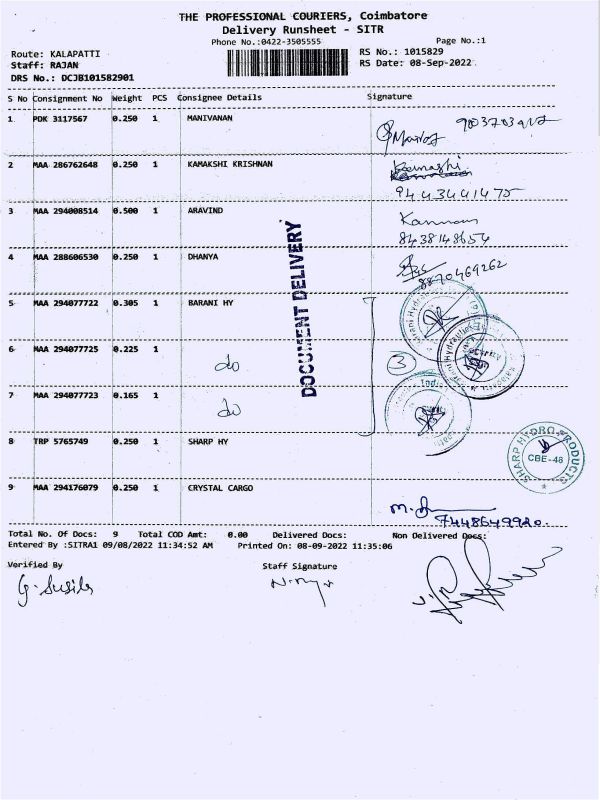 THE PROFESSIONAL COURIERS, Coimbatore
Delivery Runsheet - SITR
Phone No.:0422-3505555 Page No.:1
Route: KALAPATTI RS No.: 1015829
Staff: RAJAN RS Date: 08-Sep-2022
DRS No.: DCJB101582901
S No Consignment No Weight PCS Consignee Details Signature
1 PDK 3117567 0.250 1 MANIVANAN
2 MAA 286762648 0.250 1 KAMAKSHI KRISHNAN
9443441475
3 MAA 294008514 0.500 1 ARAVIND Kannan
8438148654
4 MAA 288606530 0.250 1 DHANYA
8870469262
DOCUMENT DELIVERY
5 MAA 294077722 0.305 1 BARANI HY
6 MAA 294077725 0.225 1 do
3
7 MAA 294077723 0.165 1 do
8 TRP 5765749 0.250 1 SHARP HY
SHARP HYDRO PRODUCTS
CBE-48
9 MAA 294176079 0.250 1 CRYSTAL CARGO
7448649920.
Total No. Of Docs: 9 Total COD Amt: 0.00 Delivered Docs: Non Delivered Docs:
Entered By :SITRA1 09/08/2022 11:34:52 AM Printed On: 08-09-2022 11:35:06
Verified By Staff Signature
G. Susila